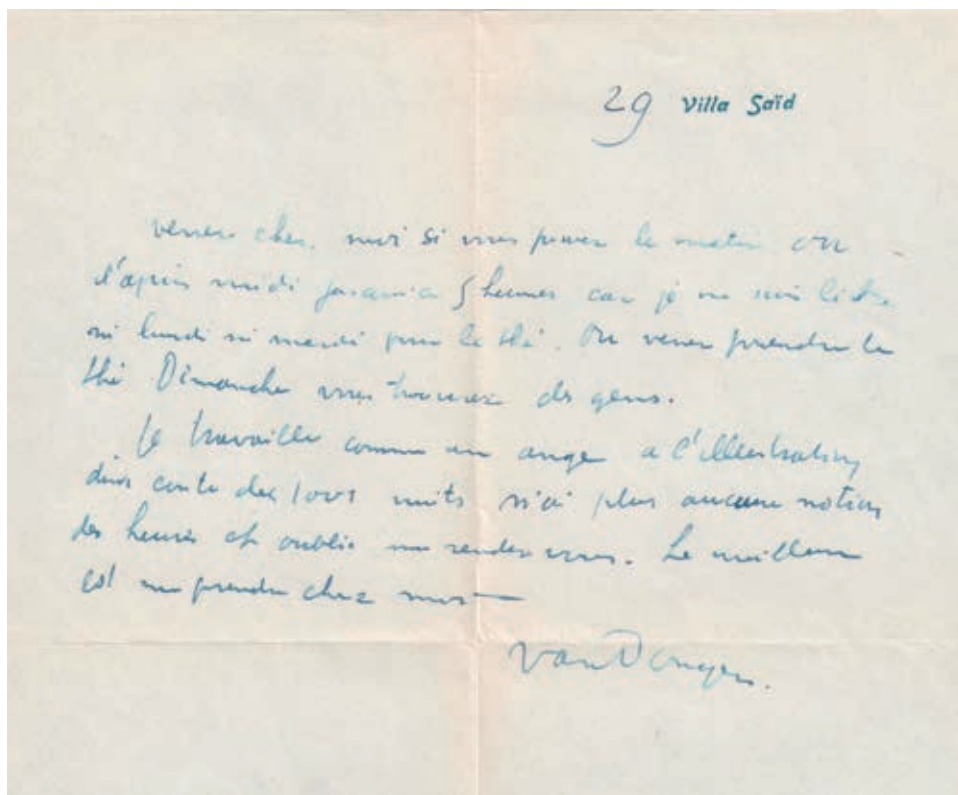 29 Villa Saïd
venez chez moi si vous pouvez le matin ou
l'après midi jusqu'à 5 heures car je ne suis libre
ni lundi ni mardi pour le thé. Ou venez prendre le
thé Dimanche vous trouverez des gens.
Je travaille comme un ange a l'illustration
conte des 1001 nuits n'ai plus aucune notion
des heures et oublie mes rendez vous. Le meilleur
est me prendre chez moi —
van Dongen.